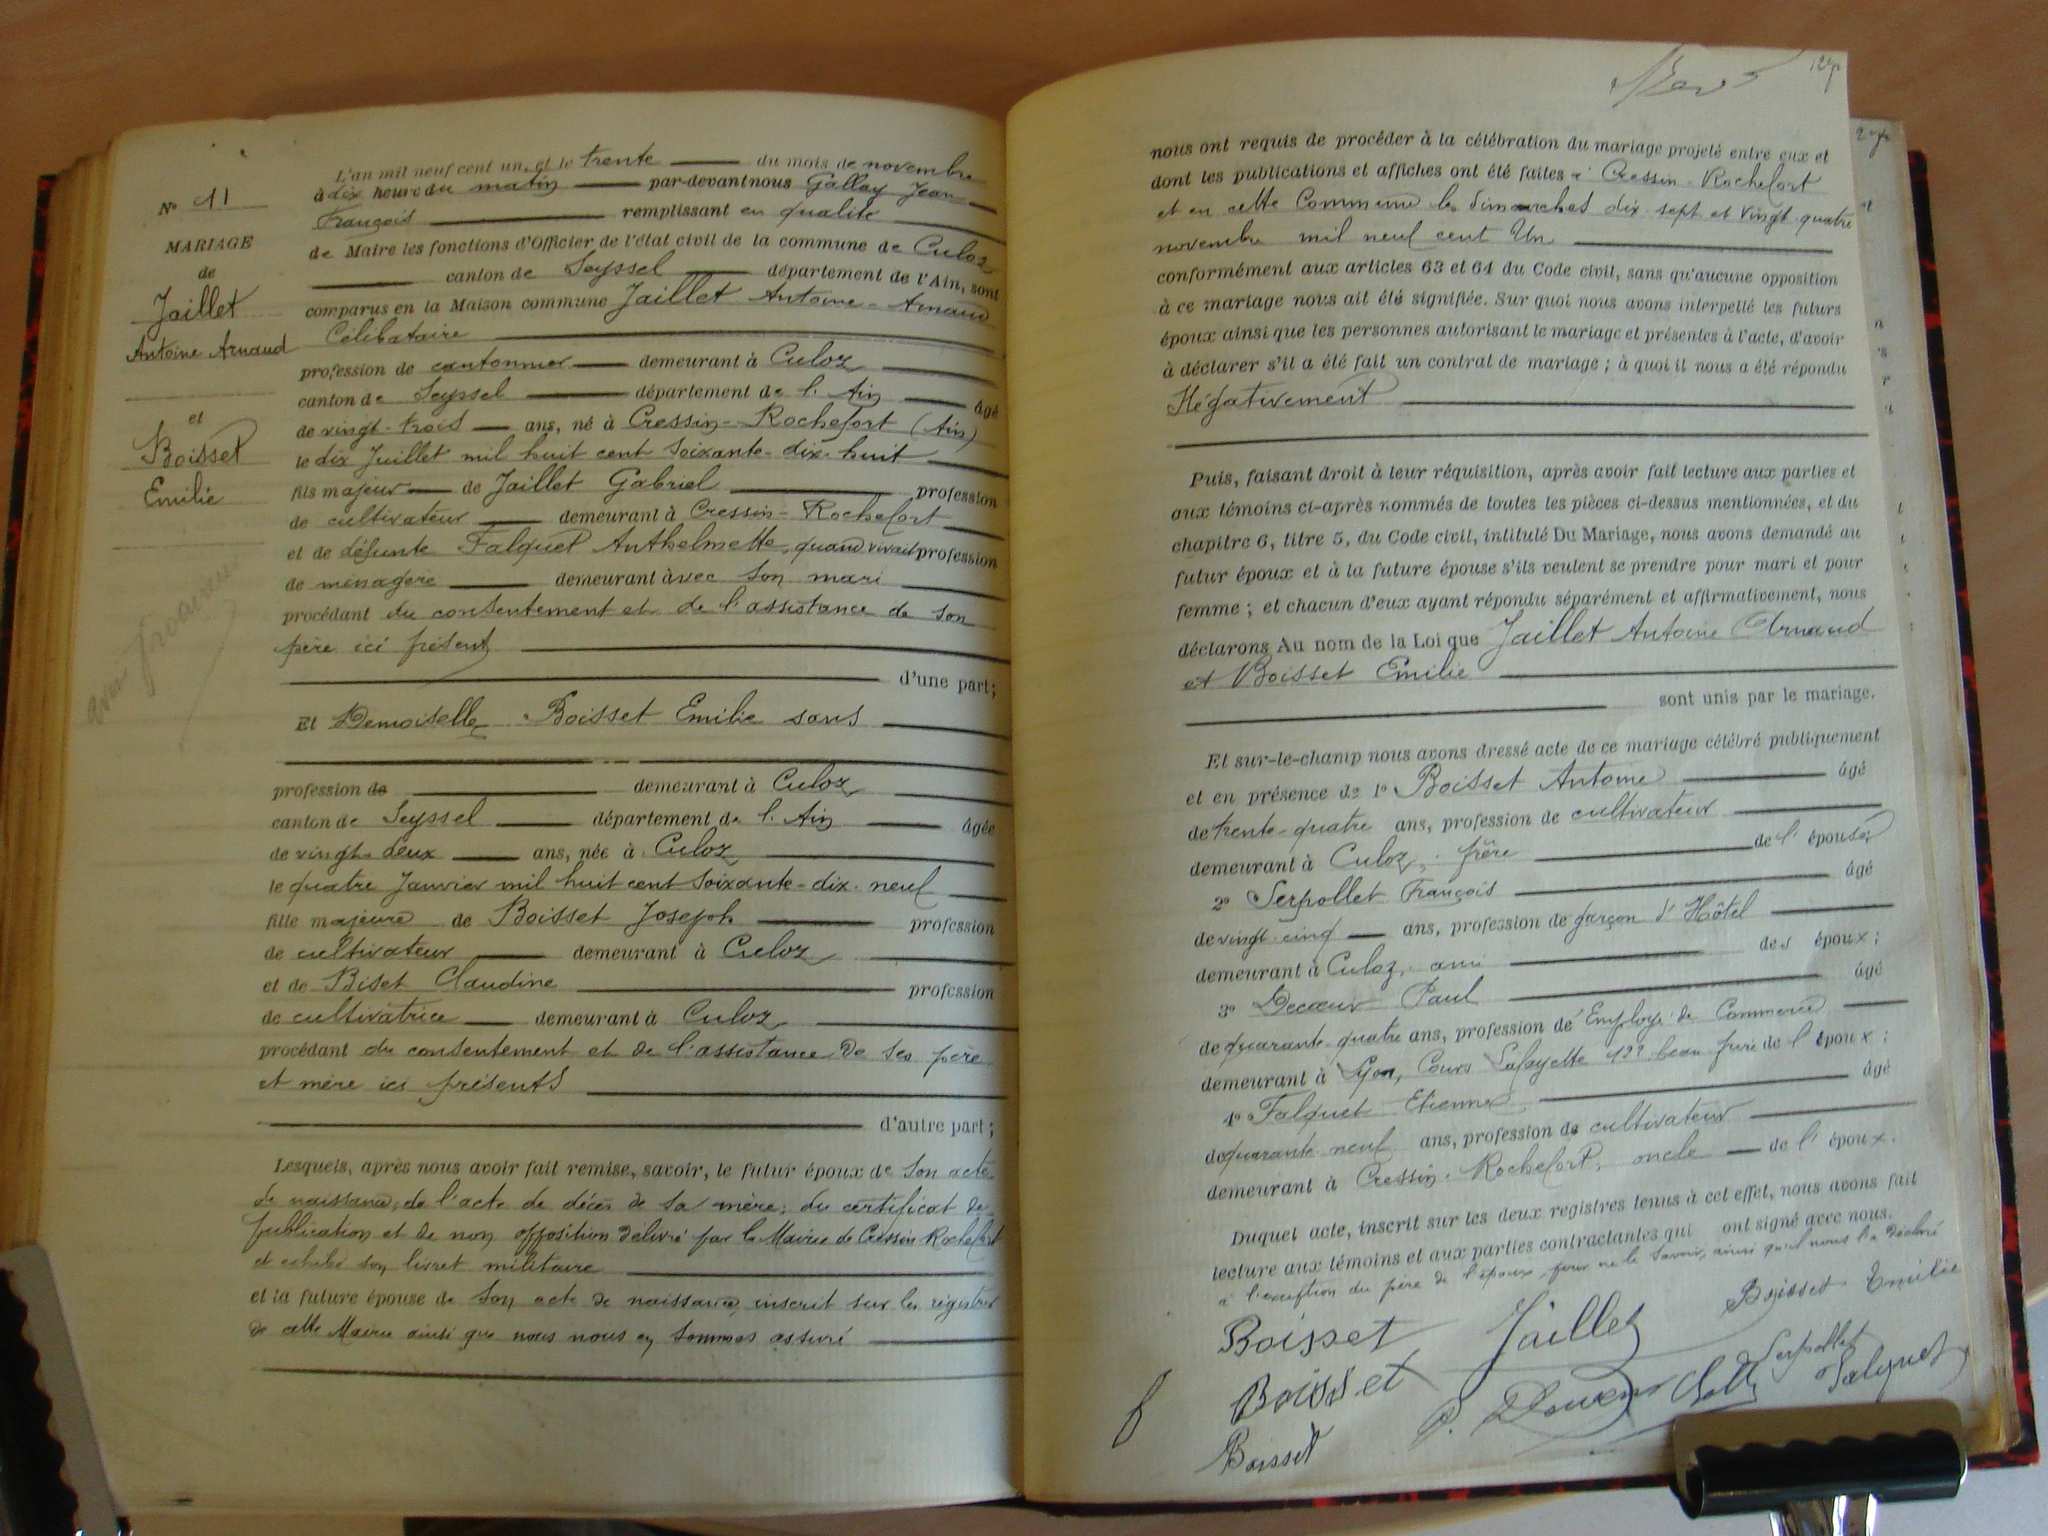 L'an mil neuf cent un, et le trente du mois de novembre
à dix heure du matin par-devant nous Gallay Jean
François remplissant en qualité
de Maire les fonctions d'Officier de l'état civil de la commune de Culoz
canton de Seyssel département de l'Ain, sont
comparus en la Maison commune Jaillet Antoine-Arnaud
Célibataire
profession de cantonnier demeurant à Culoz
canton de Seyssel département de l'Ain âgé
de vingt-trois ans, né à Cressin-Rochefort (Ain)
le dix Juillet mil huit cent soixante-dix-huit
fils majeur de Jaillet Gabriel profession
de cultivateur demeurant à Cressin-Rochefort
et de défunte Falquet Anthelmette, quand vivait profession
de ménagère demeurant avec son mari
procédant du consentement et de l'assistance de son
père ici présent
d'une part;
Et Demoiselle Boisset Emilie sans
profession de demeurant à Culoz
canton de Seyssel département de l'Ain âgée
de vingt-deux ans, née à Culoz
le quatre Janvier mil huit cent soixante-dix-neuf
fille majeure de Boisset Joseph profession
de cultivateur demeurant à Culoz
et de Biset Claudine profession
de cultivatrice demeurant à Culoz
procédant du consentement et de l'assistance de ses père
et mère ici présents
d'autre part;
Lesquels, après nous avoir fait remise, savoir, le futur époux de son acte
de naissance; de l'acte de décès de sa mère; du certificat de
publication et de non opposition délivré par la Mairie de Cressin-Rochefort
et exhibé son livret militaire
et la future épouse de son acte de naissance, inscrit sur les registres
de cette Mairie ainsi que nous nous en sommes assuré
N° 11
MARIAGE
de
Jaillet
Antoine Arnaud
et
Boisset
Emilie
nous ont requis de procéder à la célébration du mariage projeté entre eux et
dont les publications et affiches ont été faites à Cressin-Rochefort
et en cette Commune les dimanches dix-sept et vingt-quatre
novembre mil neuf cent Un
conformément aux articles 63 et 64 du Code civil, sans qu'aucune opposition
à ce mariage nous ait été signifiée. Sur quoi nous avons interpellé les futurs
époux ainsi que les personnes autorisant le mariage et présentes à l'acte, d'avoir
à déclarer s'il a été fait un contrat de mariage; à quoi il nous a été répondu
Négativement
Puis, faisant droit à leur réquisition, après avoir fait lecture aux parties et
aux témoins ci-après nommés de toutes les pièces ci-dessus mentionnées, et du
chapitre 6, titre 5, du Code civil, intitulé Du Mariage, nous avons demandé au
futur époux et à la future épouse s'ils veulent se prendre pour mari et pour
femme; et chacun d'eux ayant répondu séparément et affirmativement, nous
déclarons Au nom de la Loi que Jaillet Antoine Arnaud
et Boisset Emilie
sont unis par le mariage.
Et sur-le-champ nous avons dressé acte de ce mariage célébré publiquement
et en présence de 1° Boisset Antoine âgé
de trente-quatre ans, profession de cultivateur
demeurant à Culoz, frère de l'épouse;
2° Serpollet François âgé
de vingt-cinq ans, profession de garçon d'Hôtel
demeurant à Culoz, ami des époux;
3° Decœur Paul âgé
de quarante-quatre ans, profession de Employé de Commerce
demeurant à Lyon, Cours Lafayette beau-frère de l'époux;
4° Falquet Etienne âgé
de quarante-neuf ans, profession de cultivateur
demeurant à Cressin-Rochefort, oncle de l'époux.
Duquel acte, inscrit sur les deux registres tenus à cet effet, nous avons fait
lecture aux témoins et aux parties contractantes qui ont signé avec nous.
à l'exception du père de l'époux pour ne le savoir, ainsi qu'il nous l'a déclaré
Boisset Jaillet Boisset Emilie
Boisset P. Decœur Serpollet Falquet
Boisset